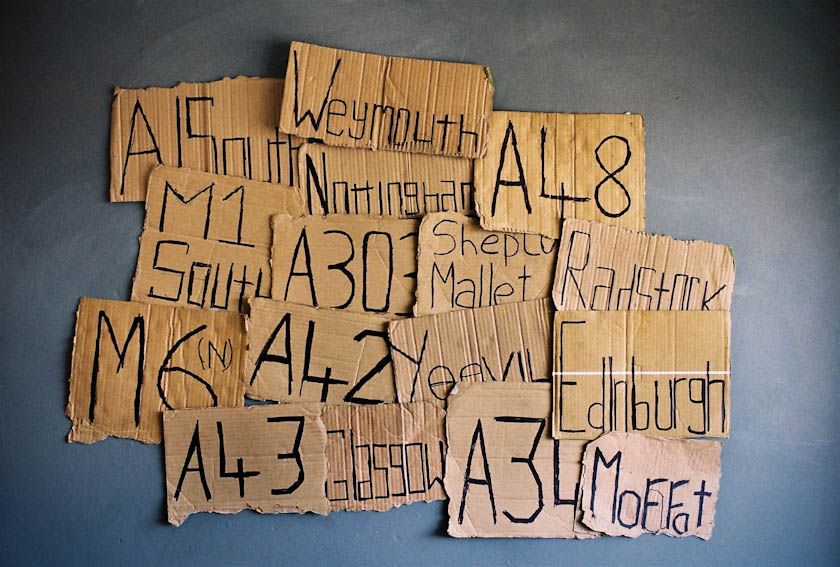 Weymouth
A1South
Nottingham
A48
M1
South
A303
Shepto
Mallet
Radstock
M6(N)
A42
YeoviL
Edinburgh
A43
Glasgow
A34
MoFFat